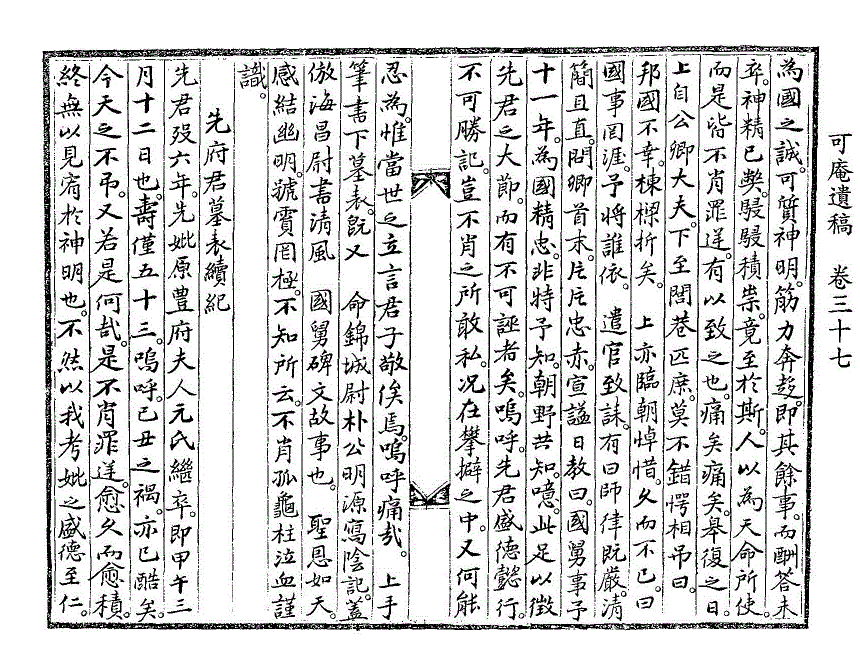 可庵遺稿 卷三十七
為國之誠。可質神明。筋力奔趍。即其餘事。而酬答未
卒。神精已弊。駸駸積祟。竟至於斯。人以為天命所使。
而是皆不肖罪逆。有以致之也。痛矣痛矣。皋復之日。
上自公卿大夫。下至閭巷匹庶。莫不錯愕相吊曰。
邦國不幸。棟樑折矣。 上亦臨朝悼惜。久而不已。曰
國事罔涯。予將誰依。 遣官致誄。有曰師律既嚴。清
簡且直。問卿首末。片片忠赤。宣謚日教曰。國舅事予
十一年。為國精忠。非特予知。朝野共知。噫。此足以徵
先君之大節。而有不可誣者矣。嗚呼。先君盛德懿行。
不可勝記。豈不肖之所敢私。况在攀擗之中。又何能
忍為。惟當世之立言君子敬俟焉。嗚呼痛哉。 上手
筆書下墓表。既又 命錦城尉朴公明源寫陰記。蓋
倣海昌尉書清風 國舅碑文故事也。 聖恩如天。
感結幽明。號霣罔極。不知所云。不肖孤龜柱泣血謹
識。
先府君墓表續紀
先君歿六年。先妣原豊府夫人元氏繼卒。即甲午三
月十二日也。壽僅五十三。嗚呼。已丑之禍。亦已酷矣。
今天之不吊。又若是何哉。是不肖罪逆。愈久而愈積。
終無以見宥於神明也。不然以我考妣之盛德至仁。